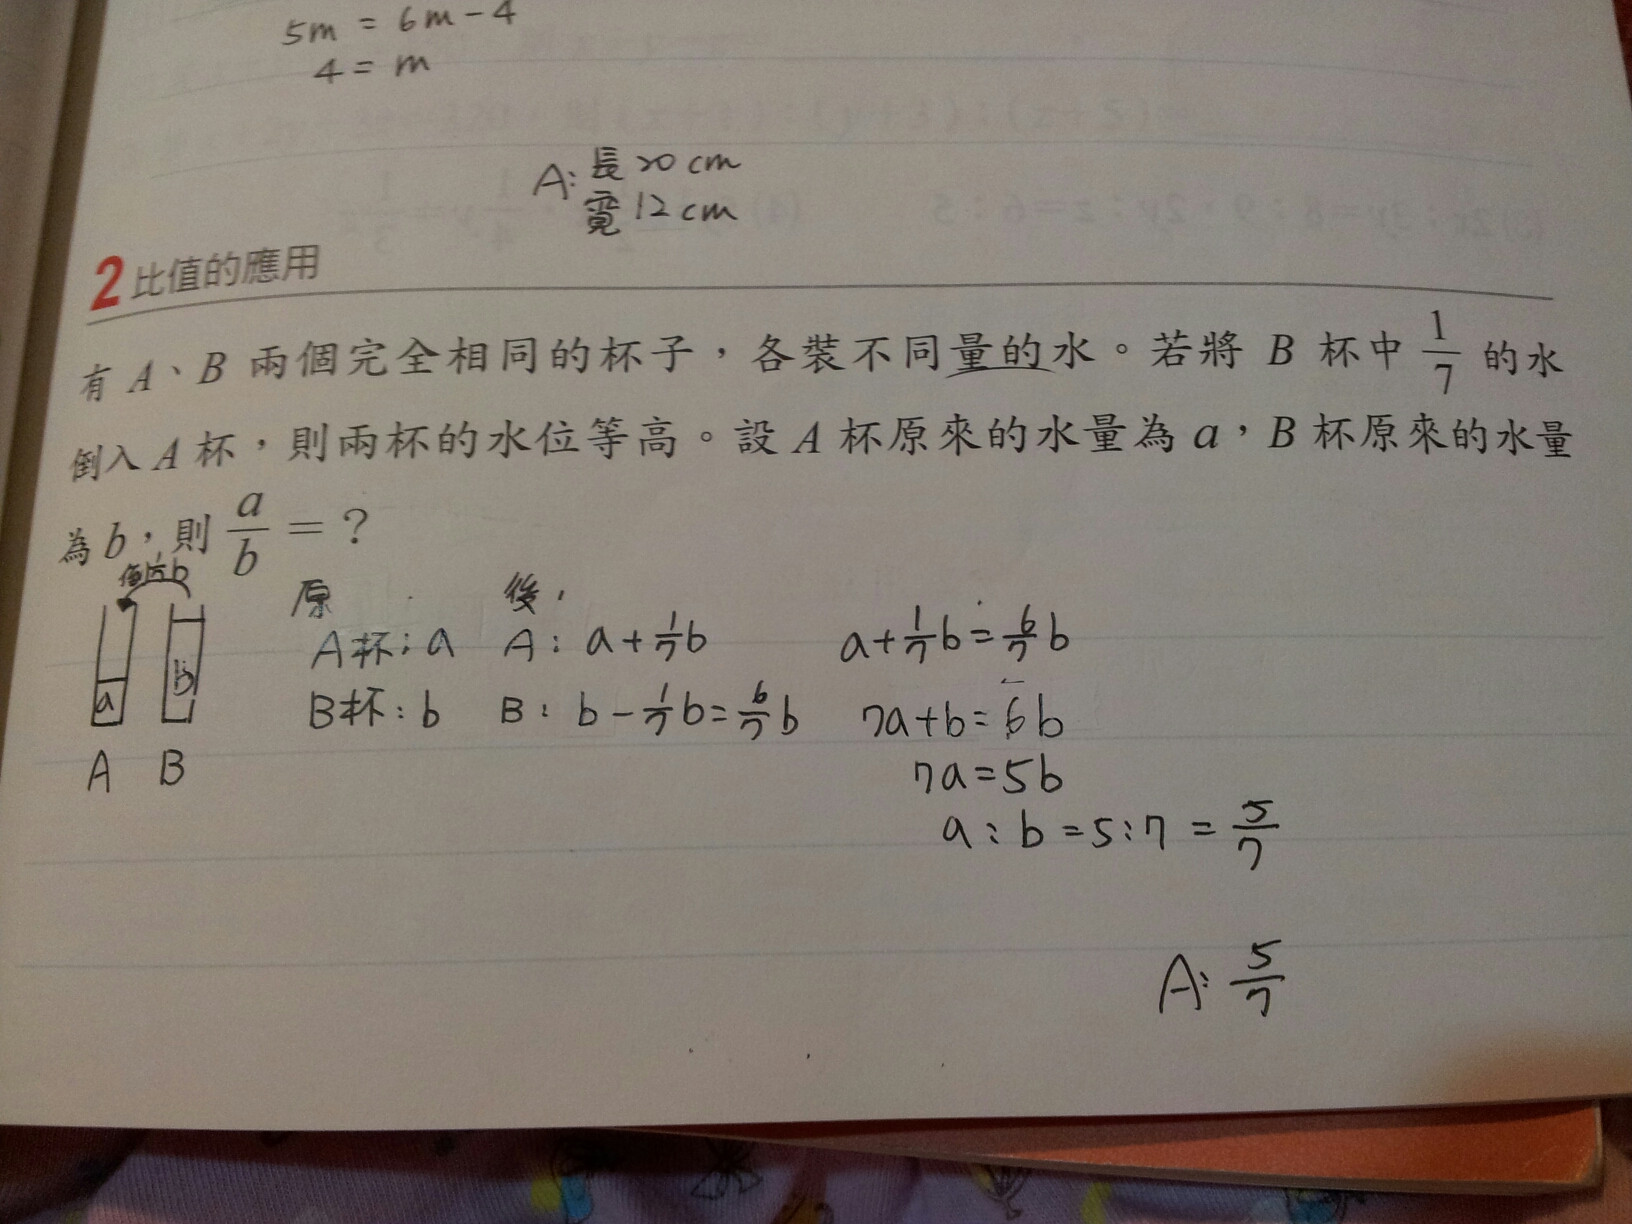 5m = 6m - 4
4 = m
A: 長 20 cm
寬 12 cm
2 比值的應用
有 A、B 兩個完全相同的杯子，各裝不同量的水。若將 B 杯中 1/7 的水
倒入 A 杯，則兩杯的水位等高。設 A 杯原來的水量為 a，B 杯原來的水量
為 b，則 a/b = ？
1/7 b
原 後
A杯: a A: a + 1/7 b a + 1/7 b = 6/7 b
B杯: b B: b - 1/7 b = 6/7 b 7a + b = 6b
a b
A B 7a = 5b
a : b = 5 : 7 = 5/7
A: 5/7